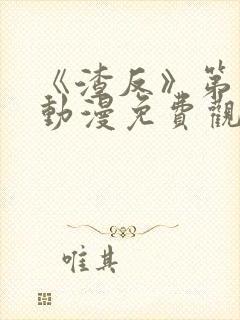 《渣反》第
動漫免費觀
唯其